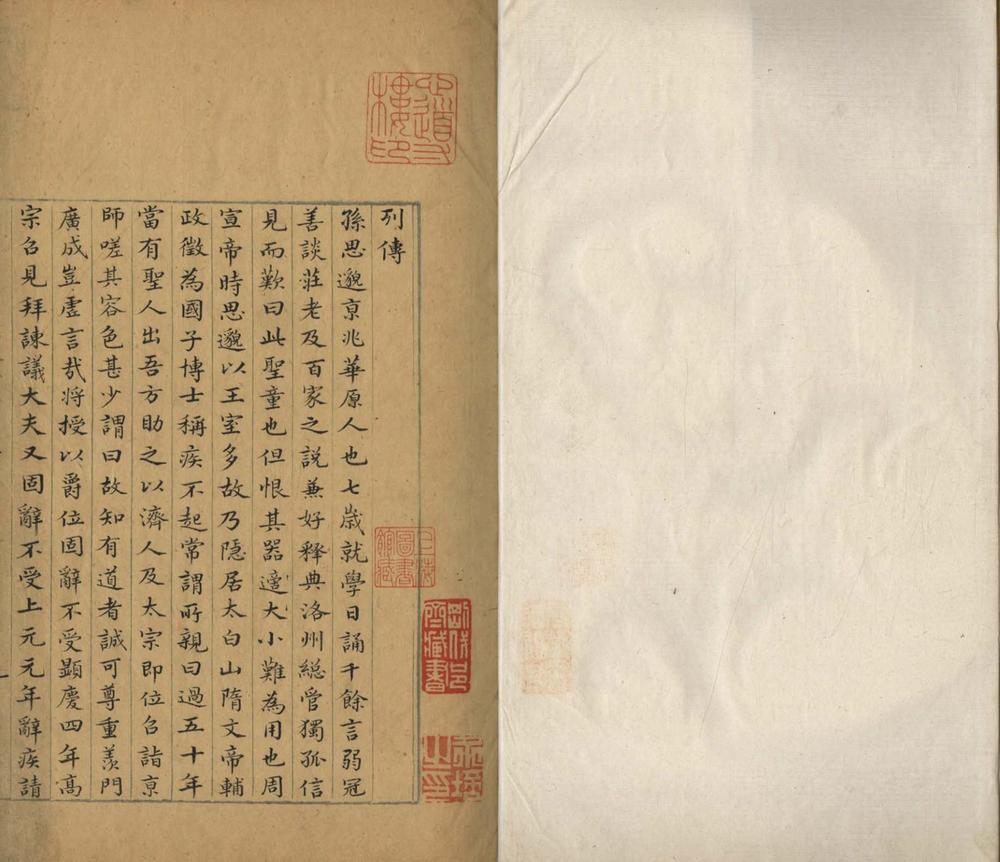 列傳
孫思邈京兆華原人也七歲就學日誦千餘言弱冠
善談莊老及百家之說兼好釋典洛州總管獨孤信
見而歎曰此聖童也但恨其器適大小難為用也周
宣帝時思邈以王室多故乃隱居太白山隋文帝輔
政徵為國子博士稱疾不起常謂所親曰過五十年
當有聖人出吾方助之以濟人及太宗即位召詣京
師嗟其容色甚少謂曰故知有道者誠可尊重羨門
廣成豈虛言哉將授以爵位固辭不受顯慶四年高
宗召見拜諫議大夫又固辭不受上元元年辭疾請